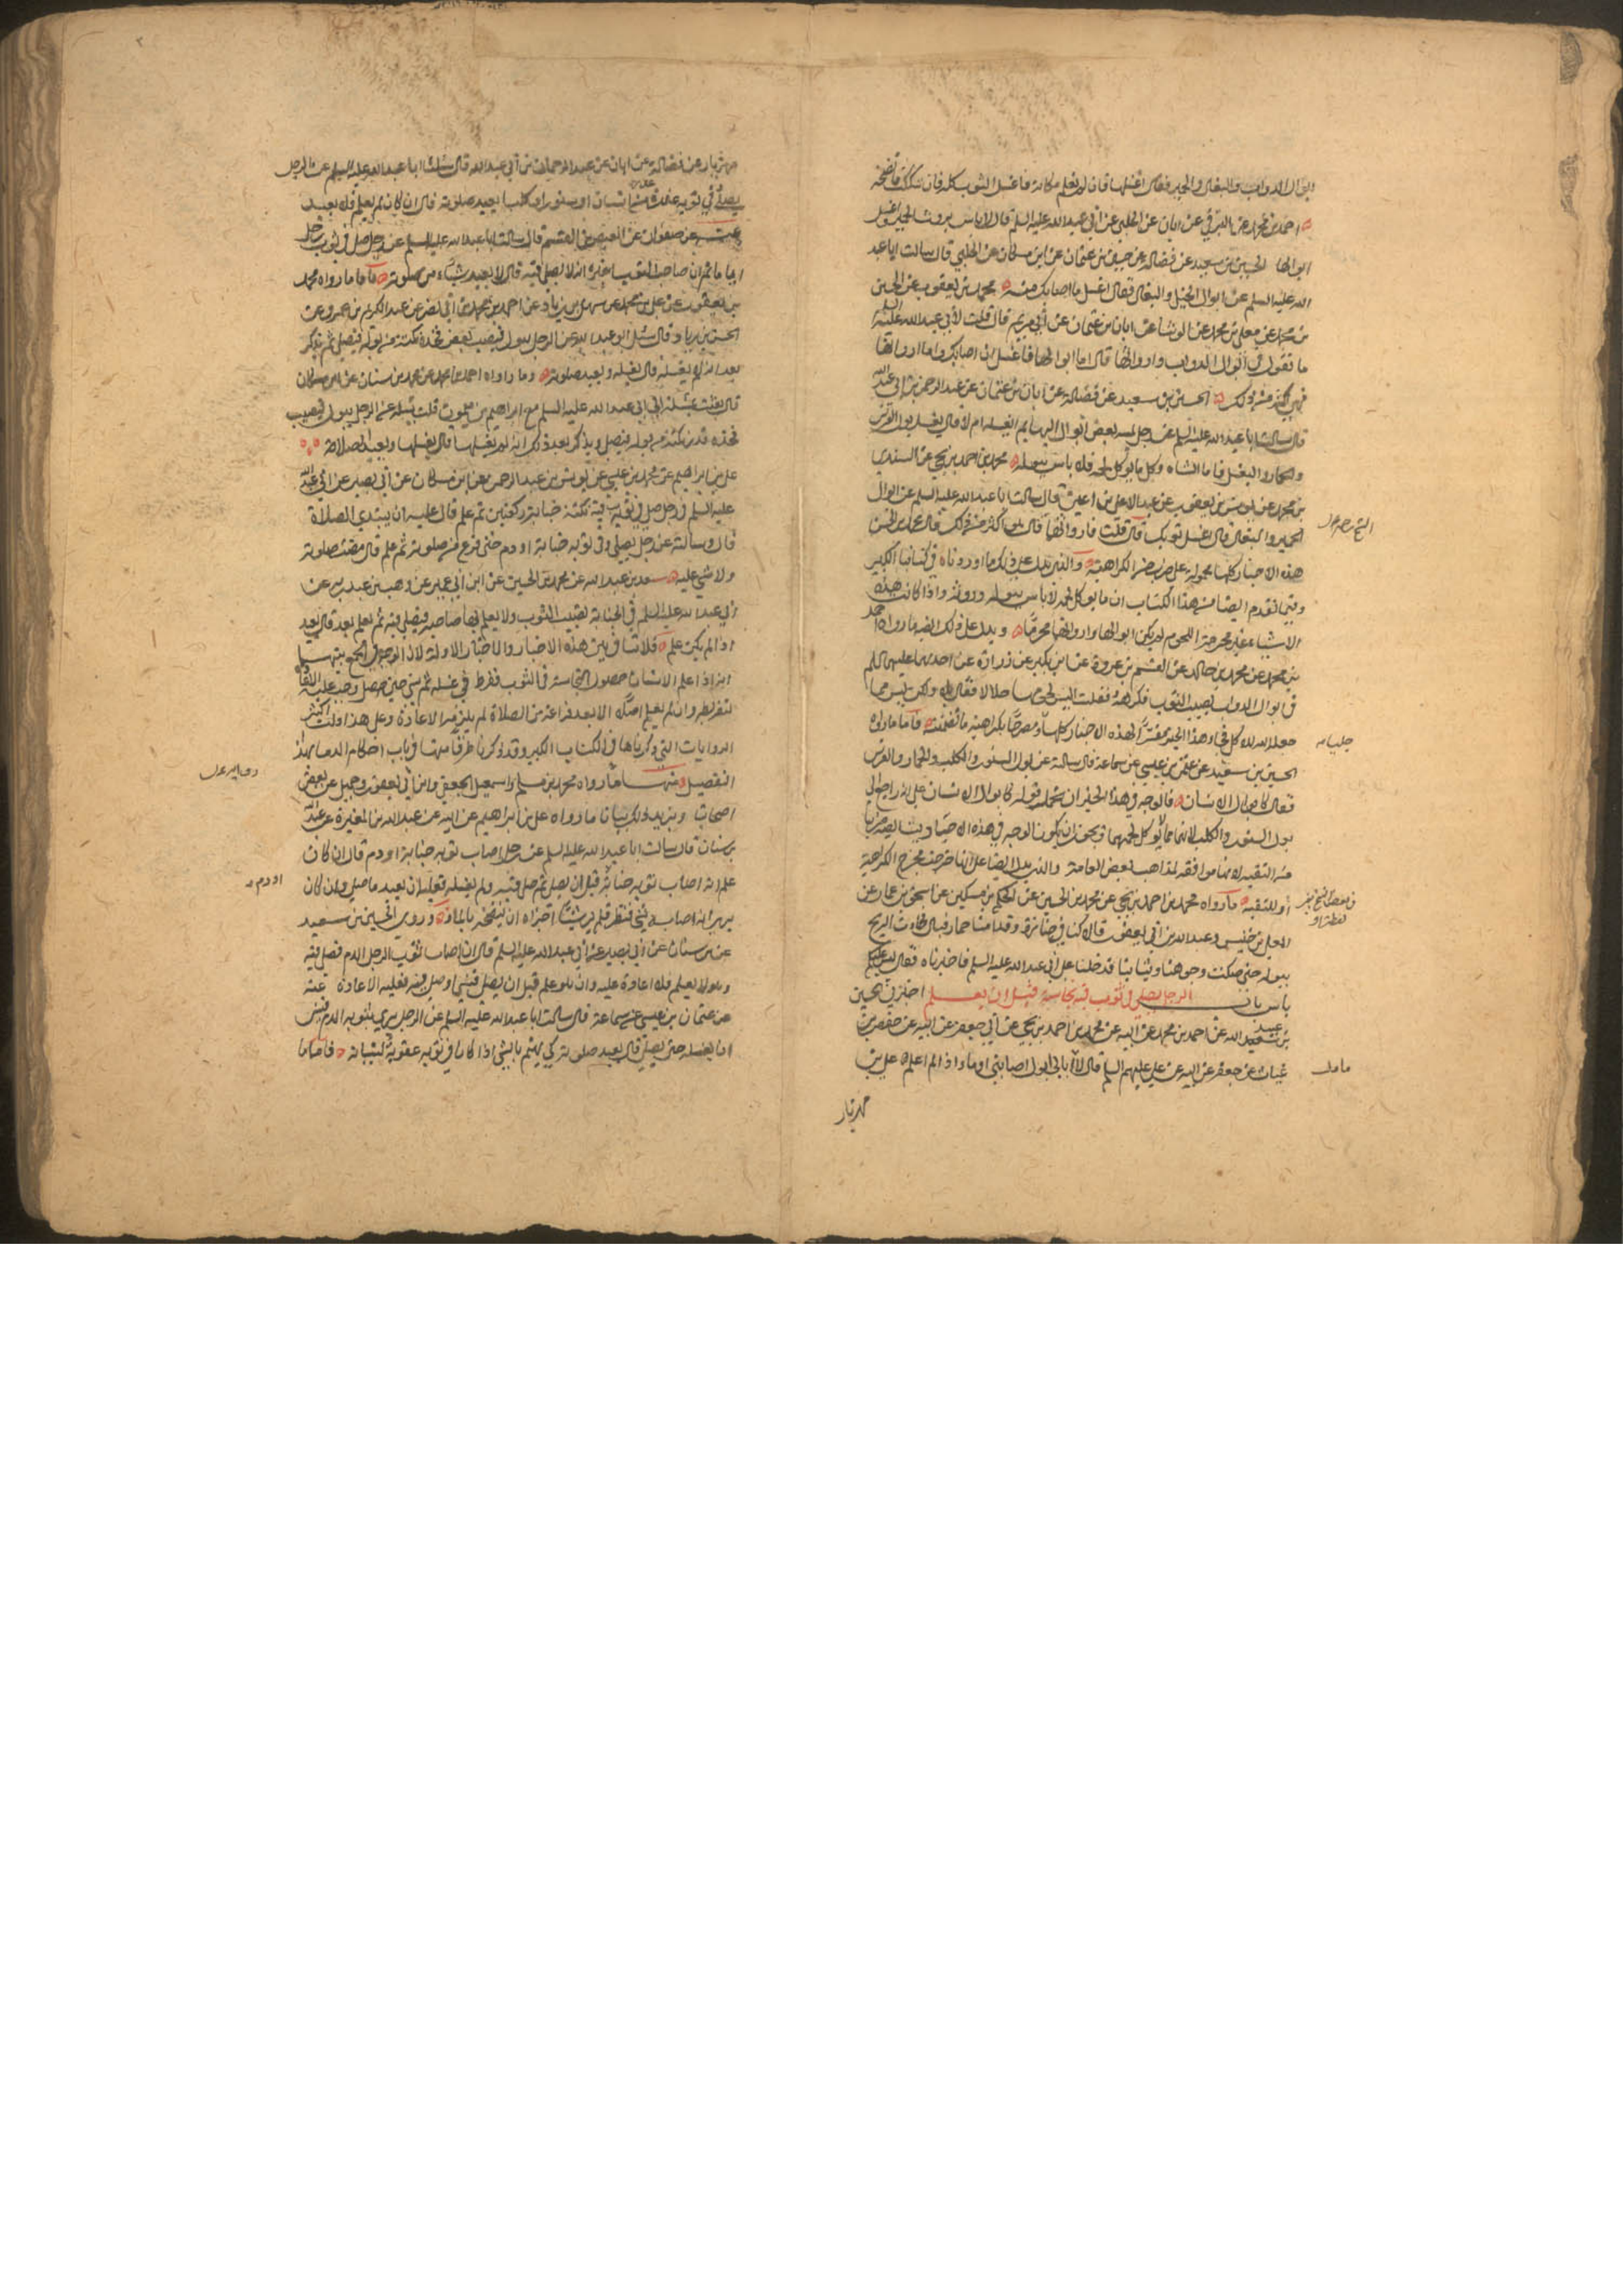 ابوال الدواب والبغال والحمير فقال اغسلها فان لم تعلم مكانه فاغسل الثوب كله فان شككت فانضحه
احمد بن محمد عن البرقي عن ابان عن الحلبي عن ابي عبد الله عليه السلم قال لا باس بروث الحمير واغسل
ابوالها الحسين بن سعيد عن فضالة عن حسين بن عثمان عن ابن مسكان عن الحلبي قال سالت ابا عبد
الله عليه السلم عن ابوال الخيل والبغال فقال اغسل ما اصابك منه محمد بن يعقوب عن الحسين
بن محمد عن معلى بن محمد عن الوشا عن ابان بن عثمان عن ابي مريم قال قلت لابي عبد الله عليه السلم
ما تقول في ابوال الدواب وارواثها قال اما ابوالها فاغسل ان اصابك واما ارواثها
فهي اكثر من ذلك الحسين بن سعيد عن فضالة عن ابان بن عثمان عن عبد الرحمن بن ابي عبد الله
قال سالت ابا عبد الله عليه السلم عن رجل يمسه بعض ابوال البهايم ايغسله ام لا قال يغسل بول الفرس
والحمار والبغل فاما الشاة وكل ما يوكل لحمه فلا باس ببوله محمد بن احمد بن يحيى عن السندي
بن محمد عن يونس بن يعقوب عن عبد الاعلى بن اعين قال سالت ابا عبد الله عليه السلم عن ابوال
الحمير والبغال قال اغسل ثوبك قال قلت فارواثها قال هو اكثر من ذلك قال محمد بن الحسن
هذه الاخبار كلها محمولة على ضرب من الكراهية والذي يدل على ذلك ما اوردناه في كتابنا الكبير
وفيما تقدم ايضا من هذا الكتاب ان ما يوكل لحمه لا باس ببوله وروثه واذا كانت هذه
الاشياء غير محرمة اللحوم لم يكن ابوالها وارواثها محرما ويدل على ذلك ايضا ما رواه احمد
بن محمد عن محمد بن خالد عن القسم بن عروة عن ابن بكير عن زرارة عن احدهما عليهما السلم
في ابوال الدواب تصيب الثوب فكرهه فقلت اليس لحومها حلالا فقال بلى ولكن ليس مما
جعله الله للاكل فجاء هذا الخبر مفسرا لهذه الاخبار كلها ومصرحا بكراهية ما تضمنته فاما ما رواه
الحسين بن سعيد عن عثمن بن عيسى عن سماعة قال سالته عن بول السنور والكلب والحمار والفرس
فقال كابوال الانسان فالوجه في هذا الخبر ان نحمل قوله كابوال الانسان على انه راجع الى
بول السنور والكلب لانهما مما لا يوكل لحمهما ويجوز ان يكون الوجه في هذه الاحاديث ايضا ضربا
من التقية لانها موافقة لمذاهب بعض العامة والذي يدل ايضا على انها خرجت مخرج الكراهية
او للتقية ما رواه محمد بن احمد بن يحيى عن محمد بن الحسين عن الحكم بن مسكين عن اسحق بن عمار عن
المعلى بن خنيس وعبد الله بن ابي يعفور قال كنا في جنازة وقدامنا حمار فبال فجاءت الريح
ببوله حتى صكت وجوهنا وثيابنا فدخلنا على ابي عبد الله عليه السلم فاخبرناه فقال ليس عليكم
باس باب الرجل يصلي في ثوب فيه نجاسة قبل ان يعلم اخبرني الحسين
بن عبيد الله عن احمد بن محمد عن ابيه عن محمد بن احمد بن يحيى عن ابي جعفر عن ابيه عن حفص بن
غياث عن جعفر عن ابيه عن علي عليهم السلم قال لا ابالي ابول اصابني او ماء اذا لم اعلم علي بن
مهزيار
جلبابه
في بعض النسخ
لفظة او
مهزيار عن فضالة عن ابان عن عبد الرحمان بن ابي عبد الله قال سالت ابا عبد الله عليه السلم عن الرجل
يصلي في ثوبه عذرة من انسان او سنور او كلب ايعيد صلوته قال ان كان لم يعلم فلا يعيد
عنه عن صفوان عن العيص بن القسم قال سالت ابا عبد الله عليه السلم عن رجل صلى في ثوب رجل
اياما ثم ان صاحب الثوب اخبره انه لا يصلي فيه قال لا يعيد شيئا من صلوته فاما ما رواه محمد
بن يعقوب عن علي بن محمد عن سهل بن زياد عن احمد بن محمد بن ابي نصر عن عبد الكريم بن عمرو عن
الحسن بن زياد قال سئل ابو عبد الله عن الرجل يبول فيصيب بعض فخذه نكتة من بوله فيصلي ثم يذكر
بعد انه لم يغسله قال يغسله ويعيد صلوته وما رواه احمد بن محمد عن محمد بن سنان عن ابن مسكان
قال بعثت بمسئلة الى ابي عبد الله عليه السلم مع ابراهيم بن ميمون قلت تسئله عن الرجل يبول فيصيب
فخذه قدر نكتة من بوله فيصلي ويذكر بعد ذلك انه لم يغسلها قال يغسلها ويعيد الصلاة
علي بن ابراهيم عن محمد بن عيسى عن يونس بن عبد الرحمن عن ابن مسكان عن ابي بصير عن ابي عبد الله
عليه السلم في رجل صلى في ثوب فيه نكتة جنابة ركعتين ثم علم قال عليه ان يبتدي الصلاة
قال وسالته عن رجل يصلي وفي ثوبه جنابة او دم حتى فرغ من صلوته ثم علم قال مضت صلوته
ولا شي عليه سعد بن عبد الله عن محمد بن الحسين عن ابن ابي عمير عن وهب بن عبد ربه عن
ابي عبد الله عليه السلم في الجنابة تصيب الثوب ولا يعلم بها صاحبه فيصلي فيه ثم يعلم بعد قال يعيد
اذا لم يكن علم فلا تنافي بين هذه الاخبار والاخبار الاولة لان الوجه في الجمع بينهما
انه اذا علم الانسان حصول النجاسة في الثوب ففرط في غسله ثم نسي حتى صلى وجب عليه الاعادة
لتفريطه وان لم يعلم اصلا الا بعد فراغه من الصلاة لم يلزمه الاعادة وعلى هذا دلت اكثر
الروايات التي ذكرناها في الكتاب الكبير وقد ذكرنا طرفا منها في باب احكام الدماء بهذا
التفصيل منها ما رواه محمد بن مسلم واسمعيل الجعفي وابن ابي يعفور وجميل عن بعض
اصحابنا ويزيد ذلك بيانا ما رواه علي بن ابراهيم عن ابيه عن عبد الله بن المغيرة عن عبد الله
بن سنان قال سالت ابا عبد الله عليه السلم عن رجل اصاب ثوبه جنابة او دم قال ان كان
علم انه اصاب ثوبه جنابة قبل ان يصلي ثم صلى فيه ولم يغسله فعليه ان يعيد ما صلى وان كان
يرى انه اصابه شي فنظر فلم ير شيئا اجزاه ان ينضحه بالماء وروى الحسين بن سعيد
عن بن سنان عن ابي بصير عن ابي عبد الله عليه السلم قال ان اصاب ثوب الرجل الدم فصلى فيه
وهو لا يعلم فلا اعادة عليه وان هو علم قبل ان يصلي فنسي وصلى فيه فعليه الاعادة عنه
عن عثمان بن عيسى عن سماعة قال سالت ابا عبد الله عليه السلم عن الرجل يرى بثوبه الدم فينسى
ان يغسله حتى يصلي قال يعيد صلوته كي يهتم بالشي اذا كان في ثوبه عقوبة لنسيانه فاما ما
او دم